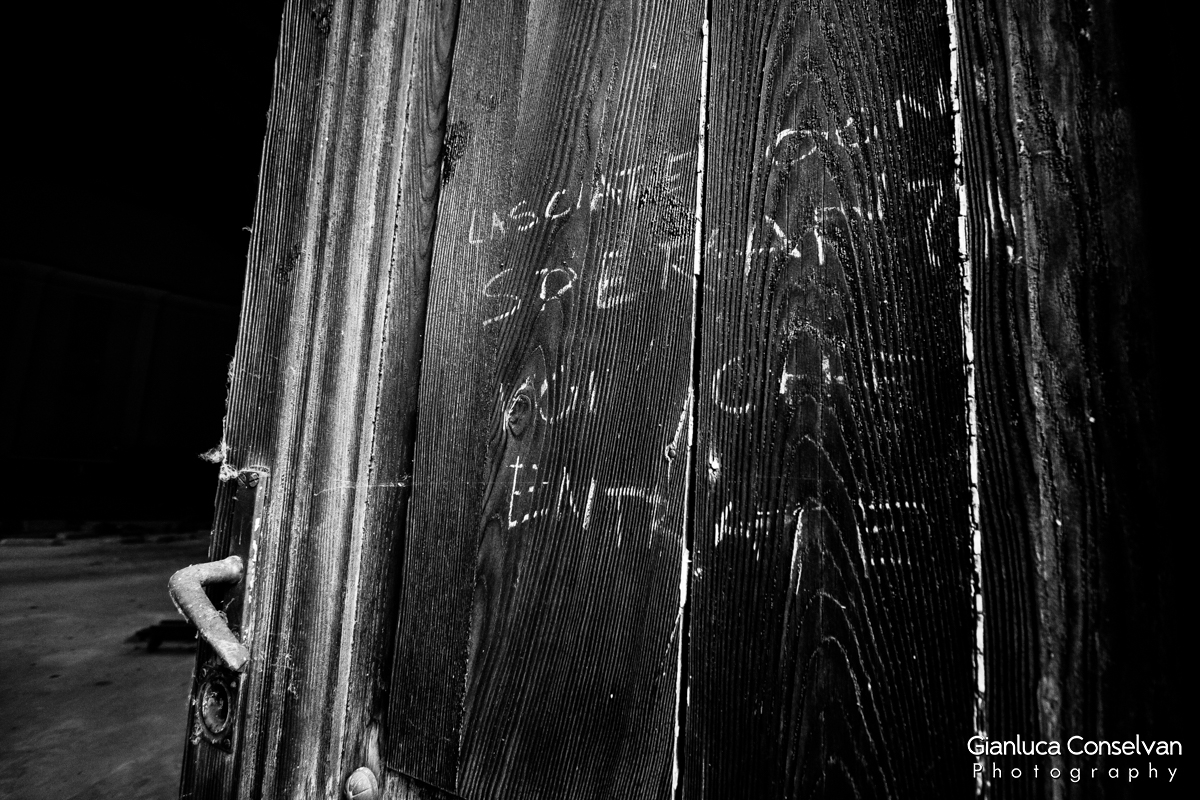 LASCIATE OGNI
SPERANZA
VOI CHE
ENTRATE
Gianluca Conselvan
Photography